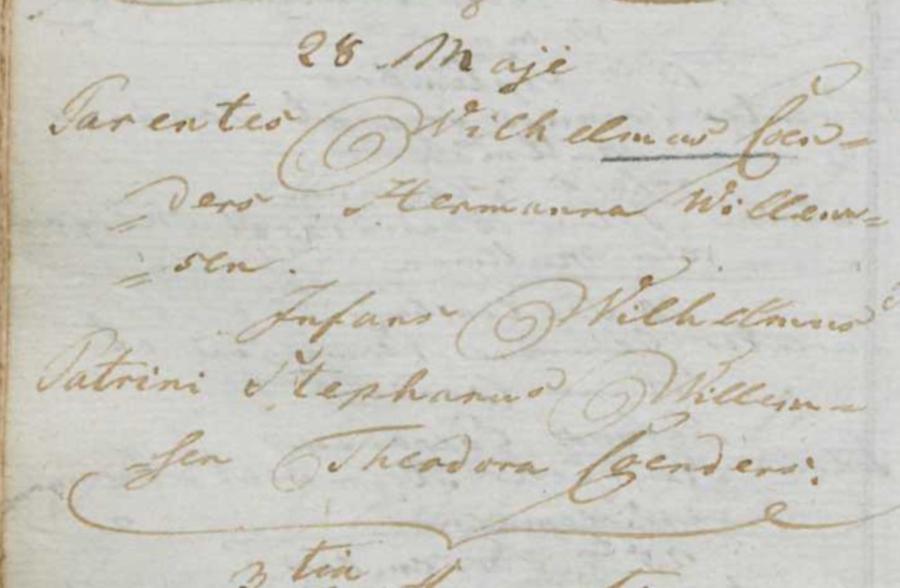 28 Maji
Parentes Wilhelmus Coen=
=ders Hermanna Willem=
=sen.
Infans Wilhelmus
Patrini Stephanus Willem=
=sen Theodora Coenders.
tia